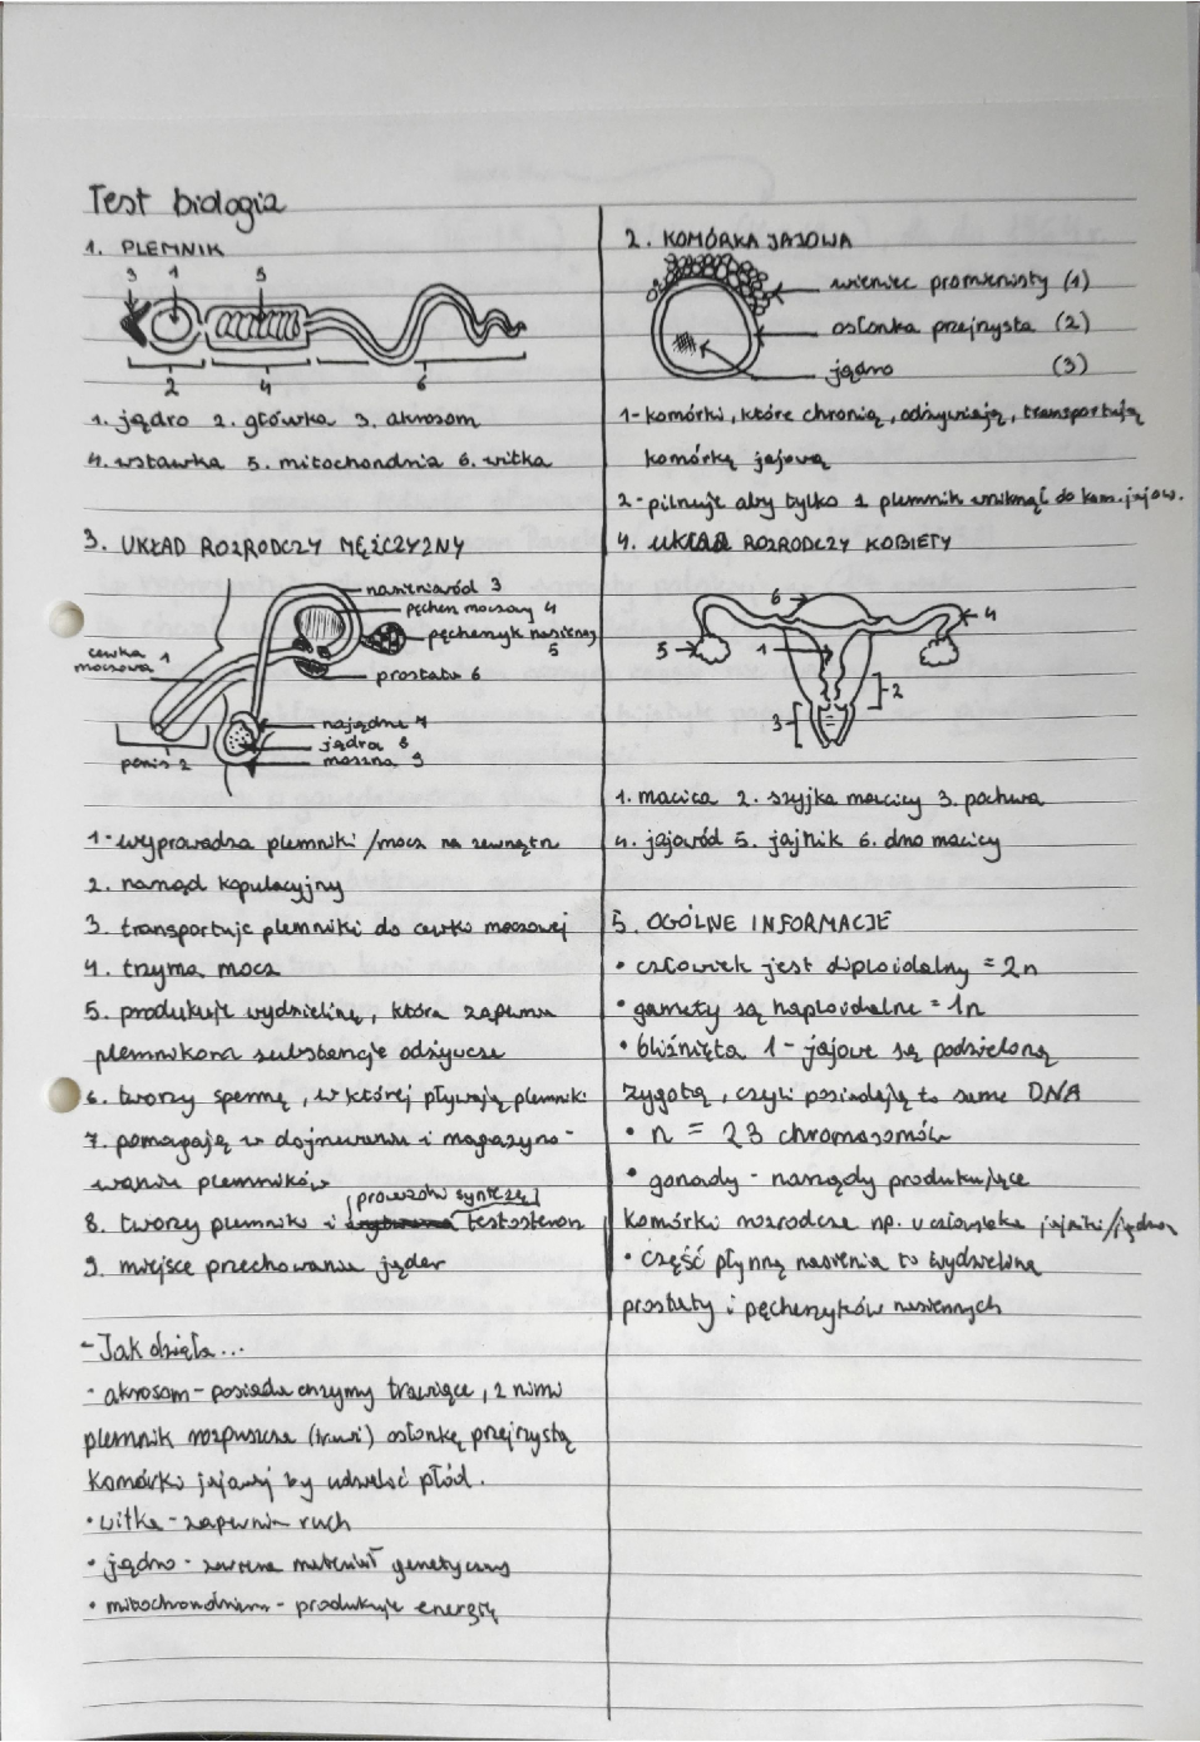 Test biologia
1. PLEMNIK
3 1 5
2 4 6
1. jądro 2. główka 3. akrosom
4. wstawka 5. mitochondria 6. witka
3. UKŁAD ROZRODCZY MĘŻCZYZNY
nasieniowód 3
pęcherz moczowy 4
pęcherzyk nasienny 5
cewka moczowa 1
prostata 6
najądrze 7
jądra 8
moszna 9
penis 2
1- wyprowadza plemniki /mocz na zewnątrz
2. narząd kopulacyjny
3. transportuje plemniki do cewki moczowej
4. trzyma mocz
5. produkuje wydzielinę, która zapewnia
plemnikom substancje odżywcze
6. tworzy spermę, w której pływają plemniki
7. pomagają w dojrzewaniu i magazyno-
waniu plemników
prowadzi syntezę
8. tworzy plemniki i testosteron
9. miejsce przechowania jąder
- Jak działa...
- akrosom - posiada enzymy trawiące, z nimi
plemnik rozpuszcza (trawi) osłonkę przejrzystą
komórki jajowej by udzielać płód.
• witka - zapewnia ruch
• jądro - zawiera materiał genetyczny
• mitochondrium - produkuje energię
2. KOMÓRKA JAJOWA
wieniec promienisty (1)
osłonka przejrzysta (2)
jądro (3)
1- komórki, które chronią, odżywiają, transportują
komórkę jajową
2- pilnuje aby tylko 1 plemnik wniknął do kom. jajow.
4. UKŁAD ROZRODCZY KOBIETY
6 4
5 1
2
3
1. macica 2. szyjka macicy 3. pochwa
4. jajowód 5. jajnik 6. dno macicy
5. OGÓLNE INFORMACJE
• człowiek jest diploidalny = 2n
• gamety są haploidalne = 1n
• bliźnięta 1-jajowe są podzieloną
zygotą, czyli posiadają to samo DNA
• n = 23 chromosomów
• gonady - narządy produkujące
komórki rozrodcze np. u człowieka jajniki/jądra
• część płynną nasienia to wydzielina
prostaty i pęcherzyków nasiennych